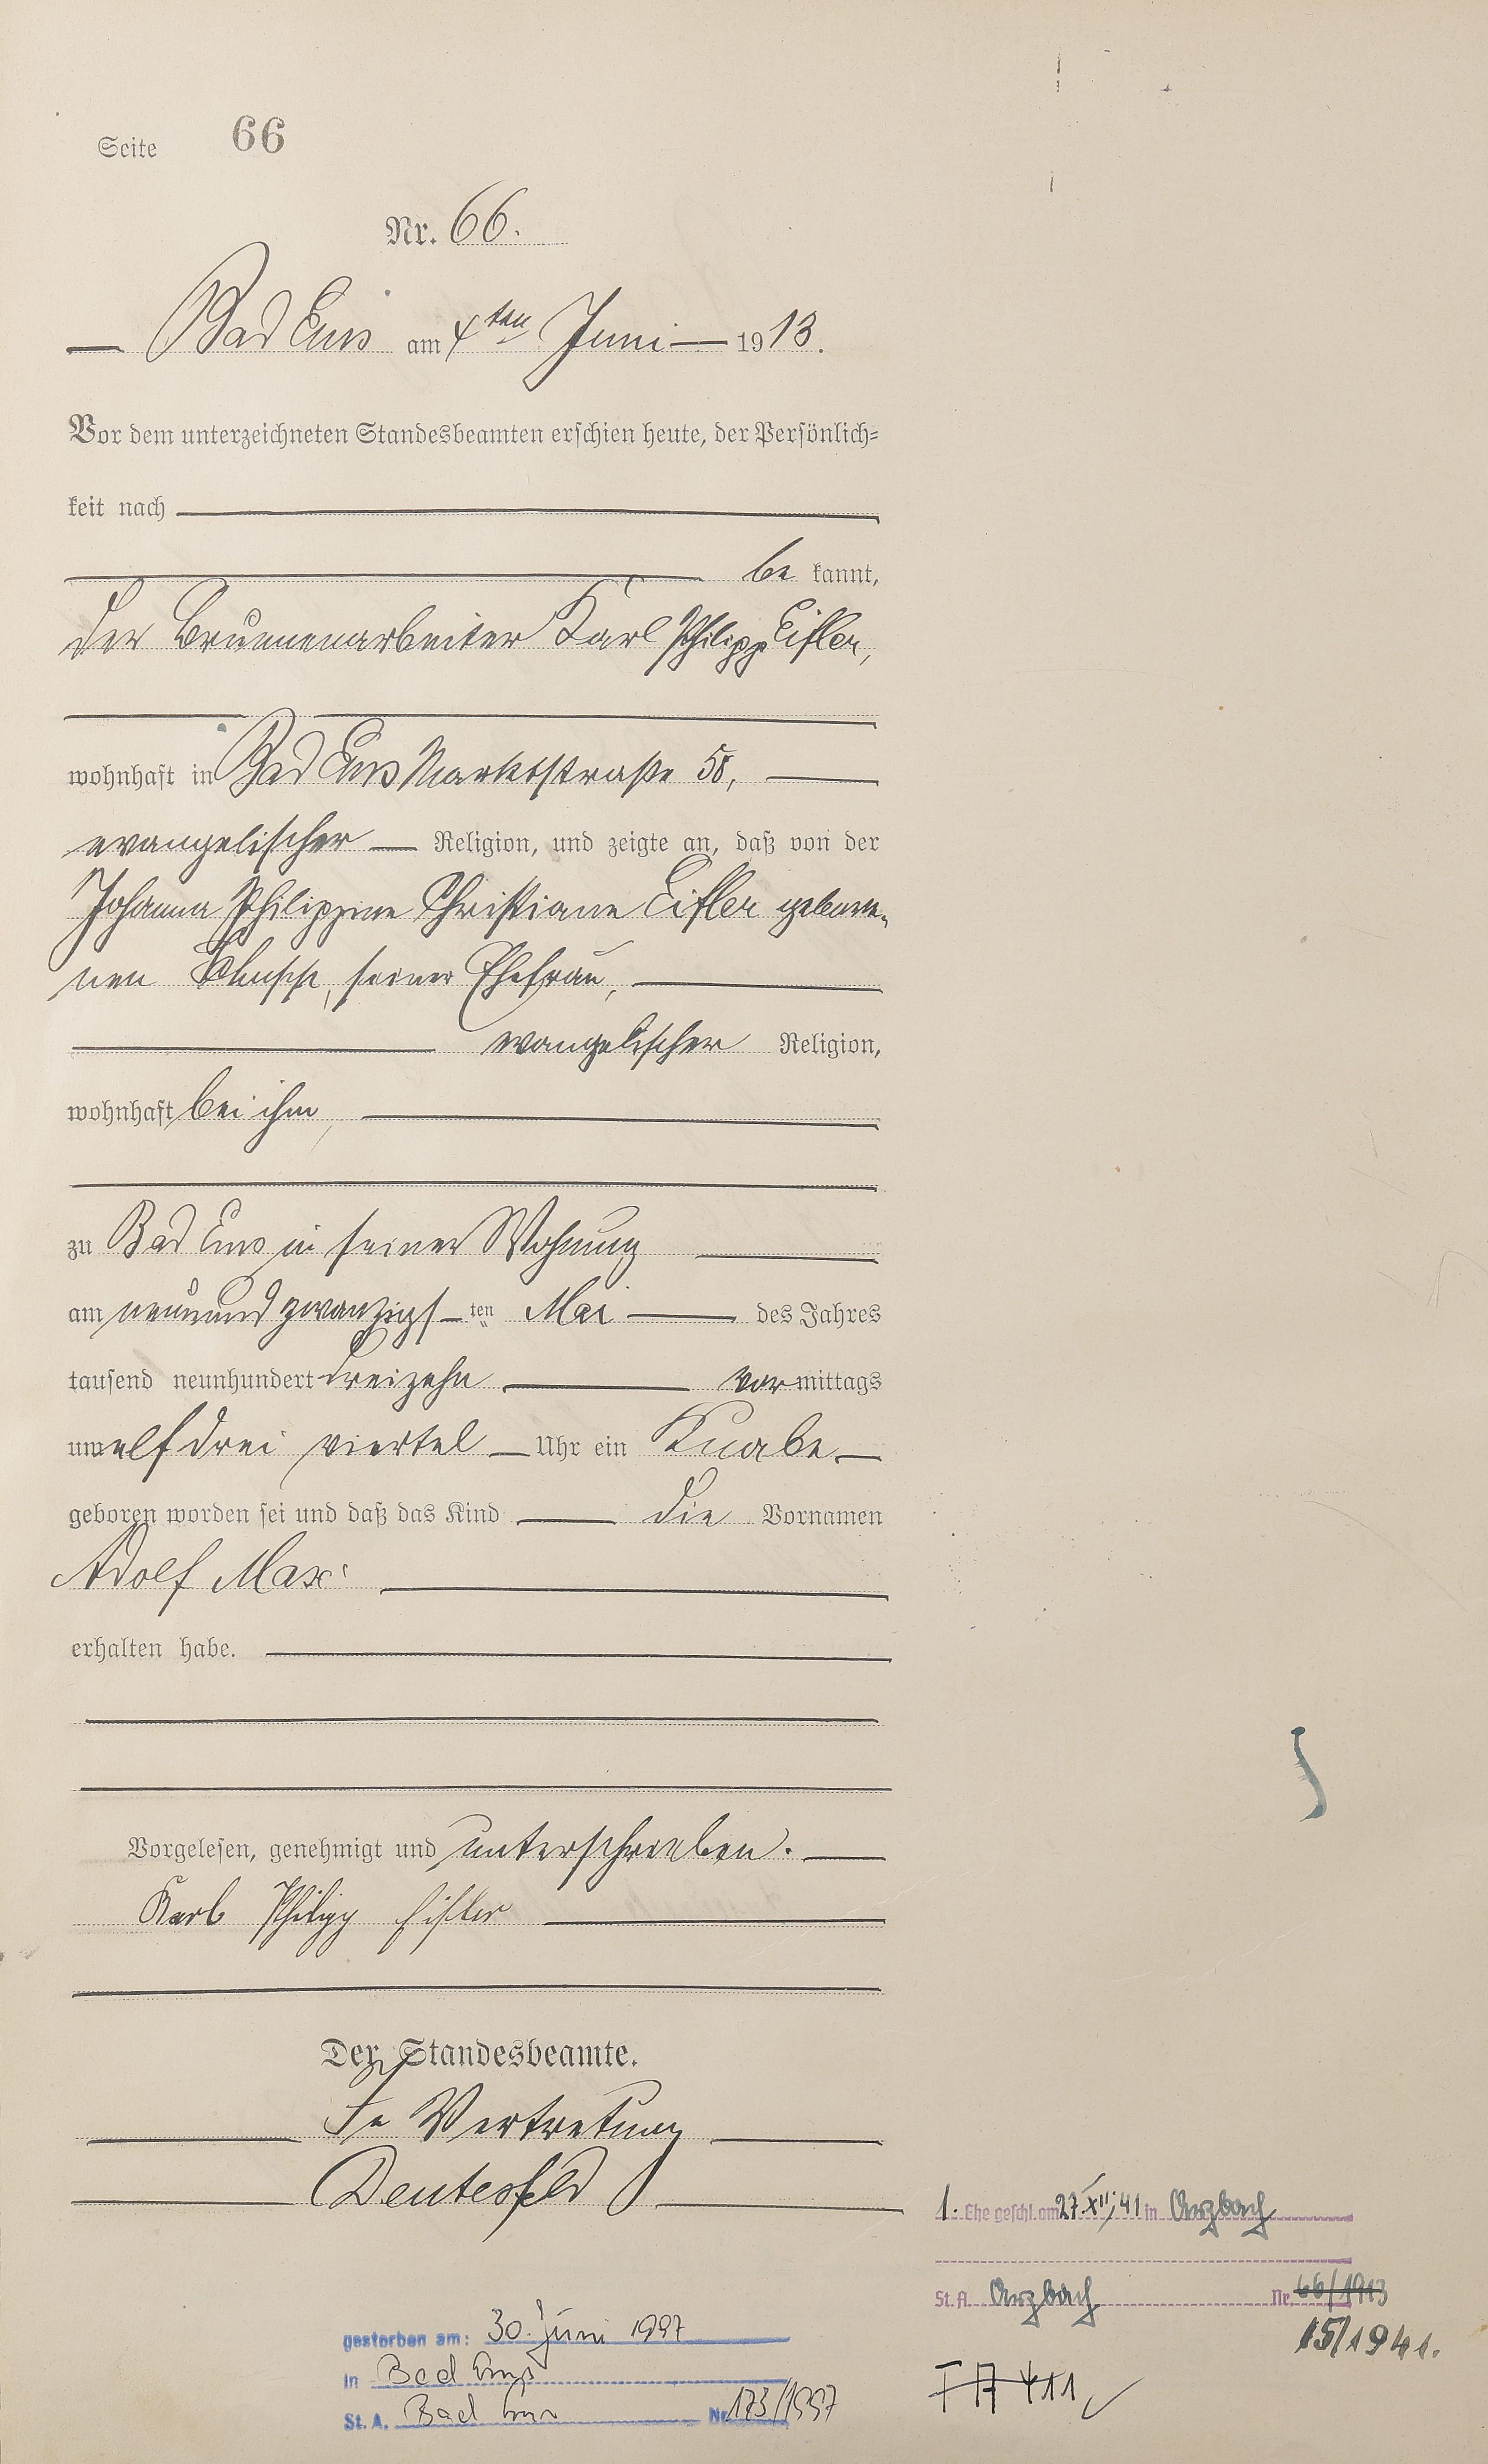 Seite 66
Nr. 66.
Bad Ems am 4ten Juni 1913.
Vor dem unterzeichneten Standesbeamten erschien heute, der Persönlich-
keit nach
be kannt,
der Brunnenarbeiter Karl Philipp Eifler,
wohnhaft in Bad Ems Marktstraße 58,
evangelischer Religion, und zeigte an, daß von der
Johanna Philippine Christiane Eifler gebore-
nen seiner Ehefrau,
evangelischer Religion,
wohnhaft bei ihm,
zu Bad Ems in seiner Wohnung
am neunundzwanzigs ten Mai des Jahres
tausend neunhundert dreizehn vormittags
um elf drei viertel Uhr ein Knabe
geboren worden sei und daß das Kind die Vornamen
Adolf Max
erhalten habe.
Vorgelesen, genehmigt und unterschrieben.
Karl Philipp Eifler
Der Standesbeamte.
In Vertretung
Deutesfeld
1. Ehe geschl. am 27.XII.41 in Arzbach
St. A. Arzbach Nr. 66/1913
15/1941.
gestorben am: 30. Juni 1997
in Bad Ems
St. A. Bad Ems Nr. 173/1997
FA 411